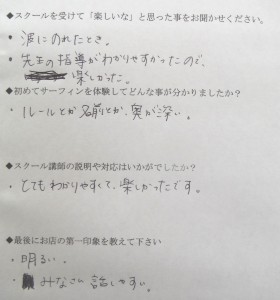 ◆スクールを受けて「楽しいな」と思った事をお聞かせください。
・波にのれたとき。
・先生の指導がわかりやすかったので、
楽しかった。
◆初めてサーフィンを体験してどんな事が分かりましたか？
・ルールとか名前とか、奥が深い。
◆スクール講師の説明や対応はいかがでしたか？
・とてもわかりやすくて、楽しかったです。
◆最後にお店の第一印象を教えて下さい
・明るい。
・みなさん話しやすい。